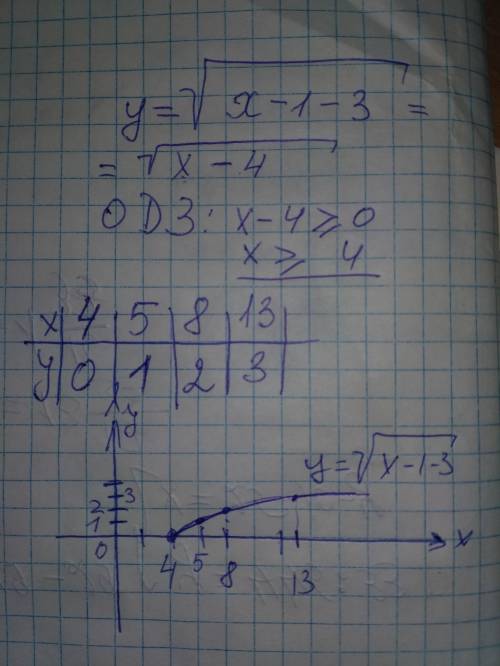 y=√x-1-3 =
= √x-4
ОДЗ: x-4⩾0
x⩾ 4
x 4 5 8 13
y 0 1 2 3
y
y=√x-1-3
3
2
1
0 4 5 8 13 x